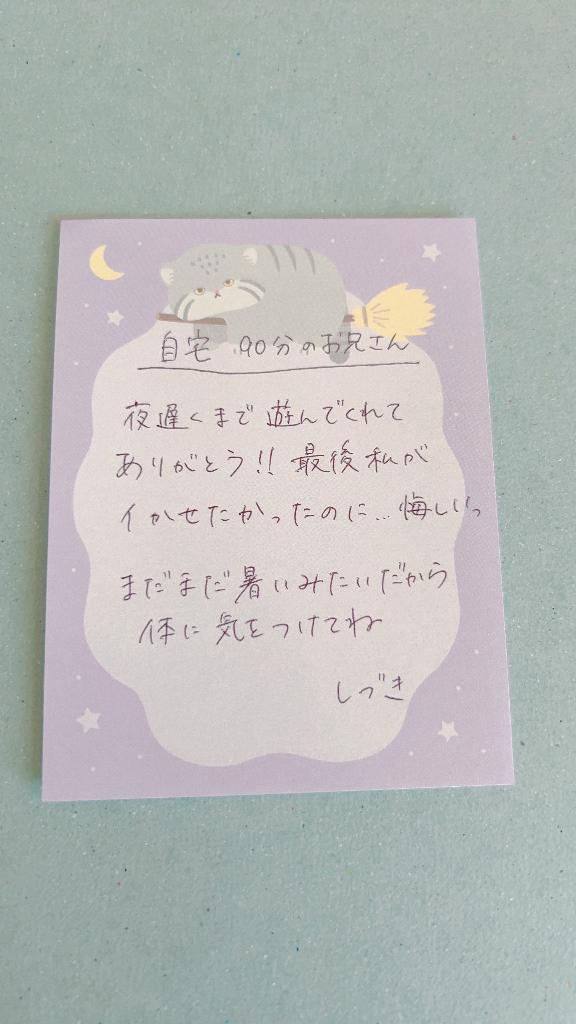 自宅 90分のお兄さん
夜遅くまで遊んでくれて
ありがとう!! 最後私が
イかせたかったのに... 悔しいっ
まだまだ暑いみたいだから
体に気をつけてね
しづき